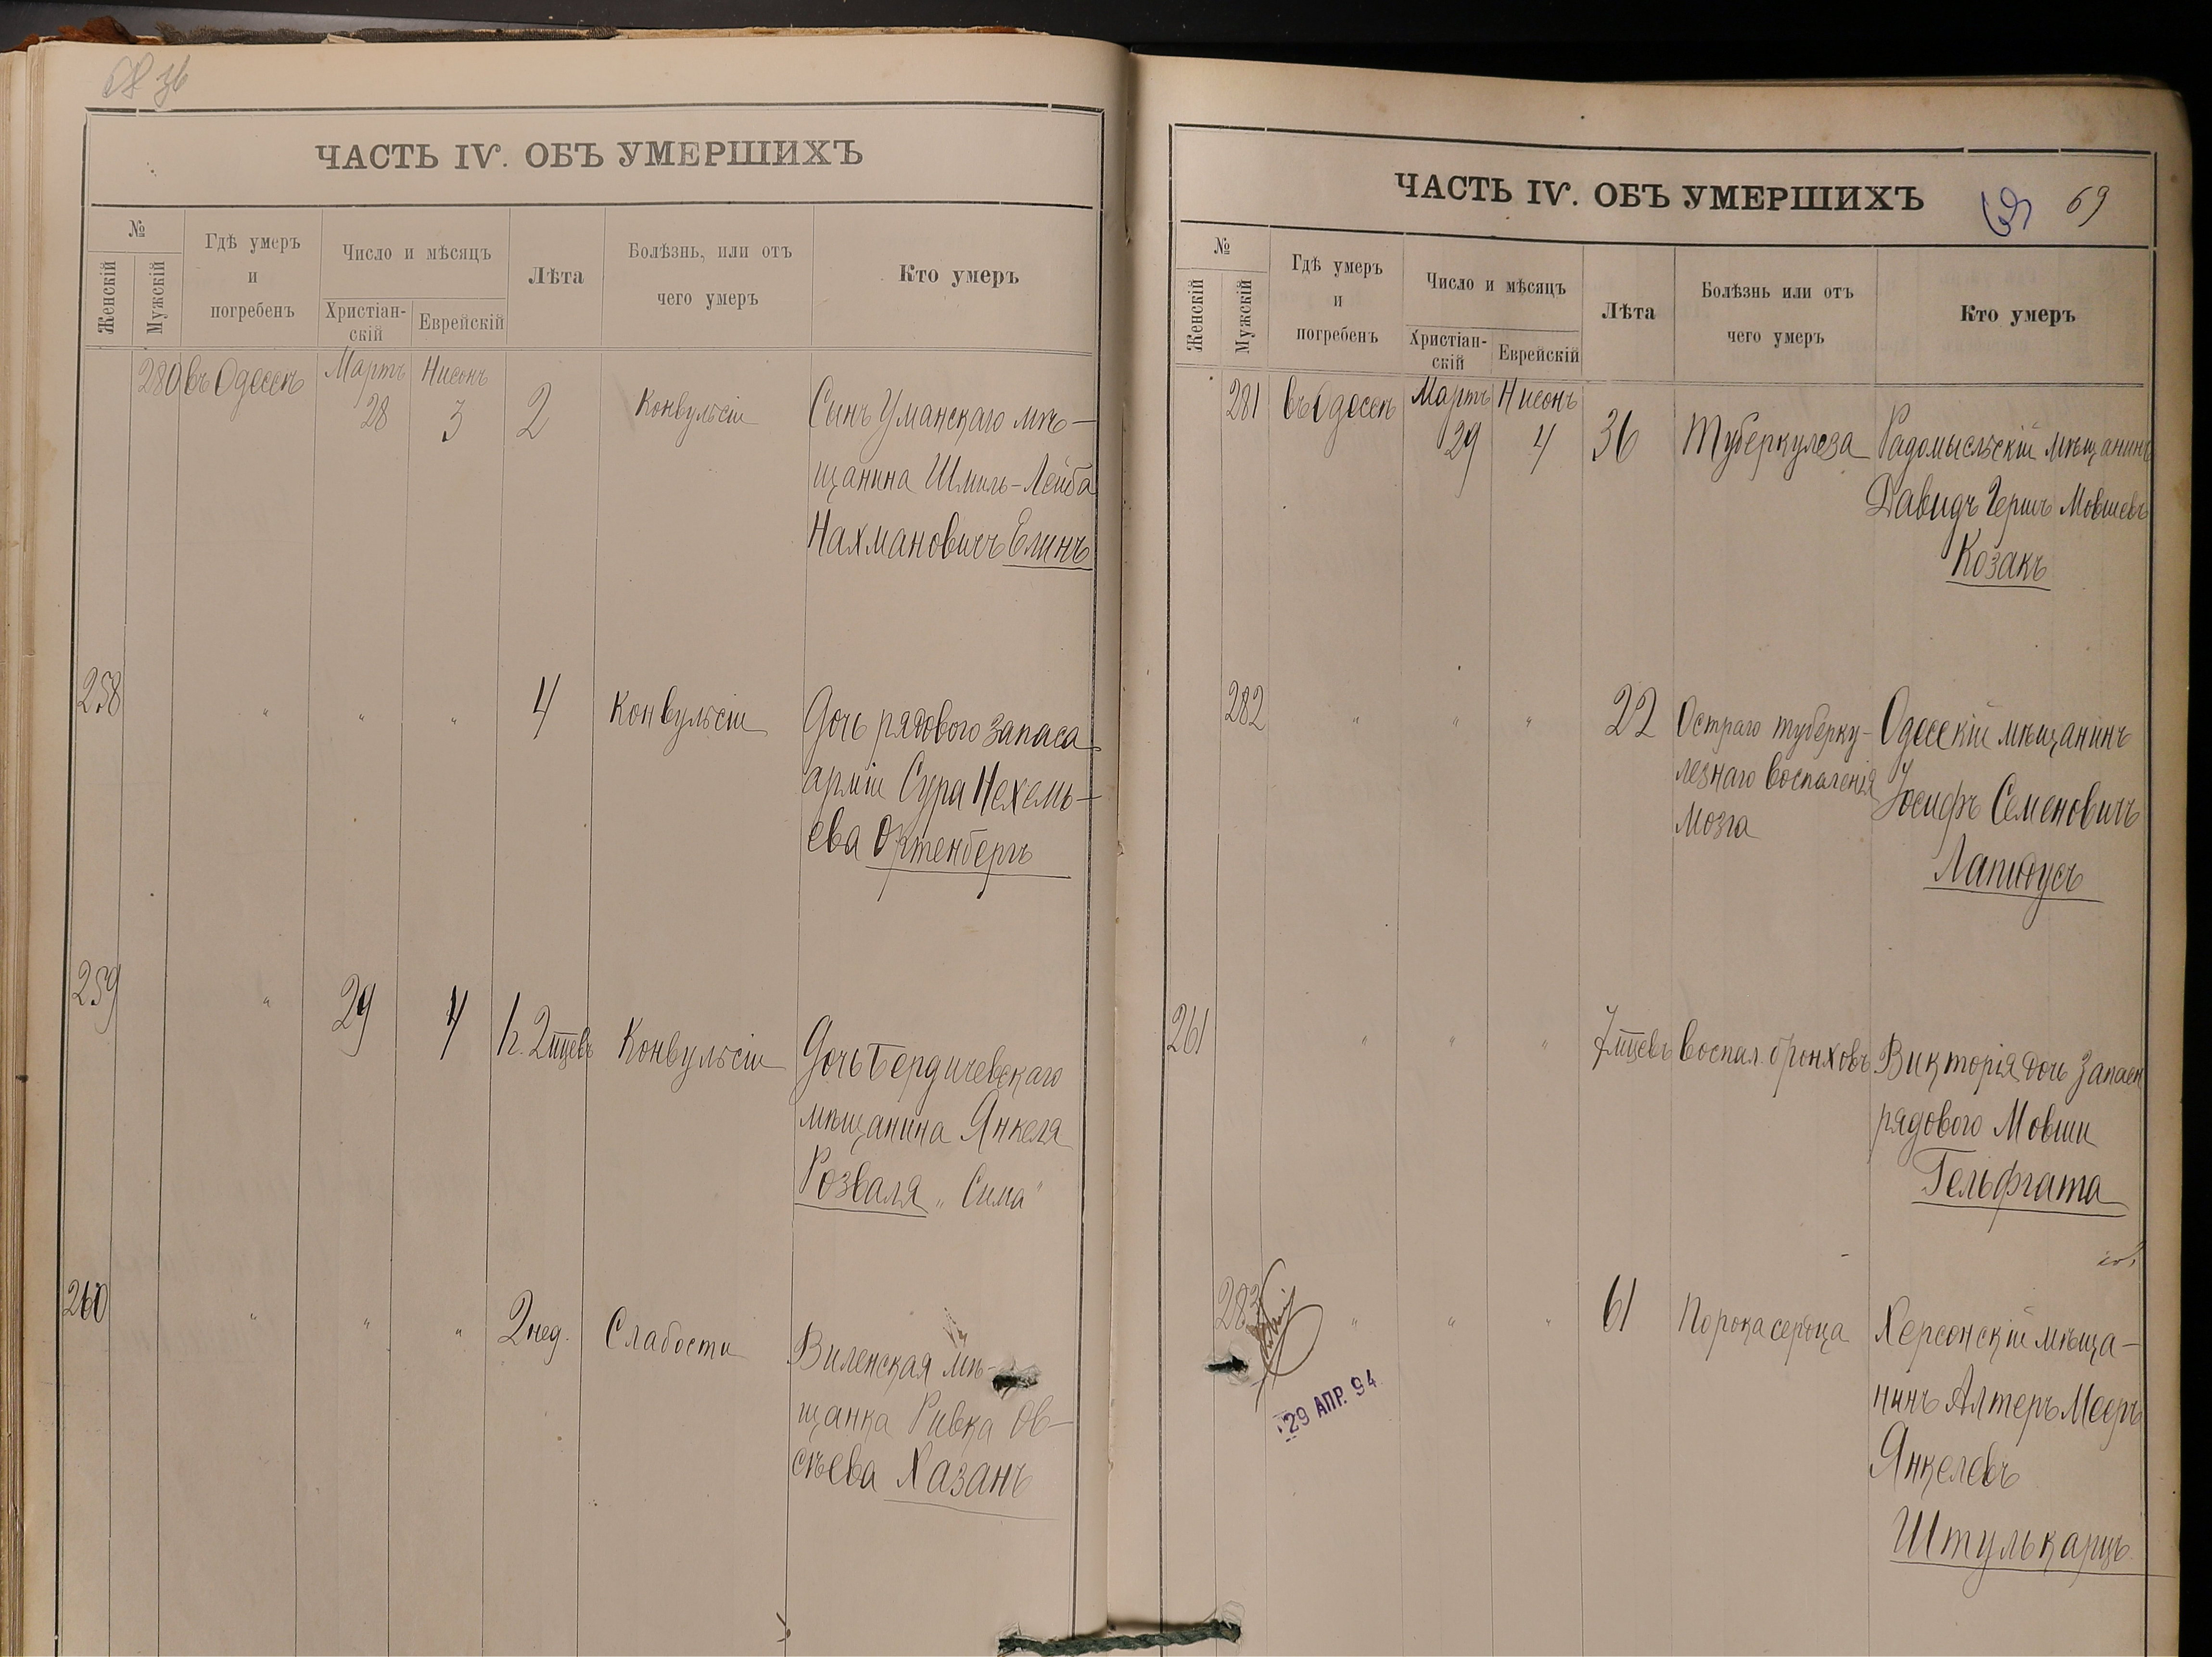 ЧАСТЬ IV. ОБЪ УМЕРШИХЪ
№
Женскій
Мужскій
Гдѣ умеръ
и
погребенъ
Число и мѣсяцъ
Христіан-
скій
Еврейскій
Лѣта
Болѣзнь, или отъ
чего умеръ
Кто умеръ
280 въ Одессѣ Мартъ 28 Нисонъ 3 2 Конвульсіи Сынъ Уманскаго мѣ-
щанина Шмиль-Лейба
Нахмановичъ Елинъ
258 " " " 4 Конвульсіи Дочь рядового запаса
арміи Сура Нехемь-
ева Ортенбергъ
259 " 29 4 1 г. 2 мцевъ Конвульсіи Дочь Бердичевскаго
мѣщанина Янкеля
Розваля „Сима"
260 " " " 2 нед. Слабости Виленская мѣ-
щанка Ривка Ов-
сѣева Хазанъ
ЧАСТЬ IV. ОБЪ УМЕРШИХЪ
69 69
№
Женскій
Мужскій
Гдѣ умеръ
и
погребенъ
Число и мѣсяцъ
Христіан-
скій
Еврейскій
Лѣта
Болѣзнь или отъ
чего умеръ
Кто умеръ
281 въ Одессѣ Мартъ 29 Нисонъ 4 36 Туберкулеза Радомысльскій мѣщанинъ
Давидъ Гершъ Мовшевъ
Козакъ
282 " " " 22 Остраго туберку- Одесскій мѣщанинъ
лезнаго воспаленія Іосифъ Семеновичъ
мозга Лапидусъ
261 " " " 7 мцевъ воспал. бронховъ Викторія дочь запасн
рядового Мовши
Гельфгата
283 " " " 61 Порока сердца Херсонскій мѣща-
нинъ Алтеръ Мееръ
Янкелевъ
Штулькарцъ
29 АПР. 94